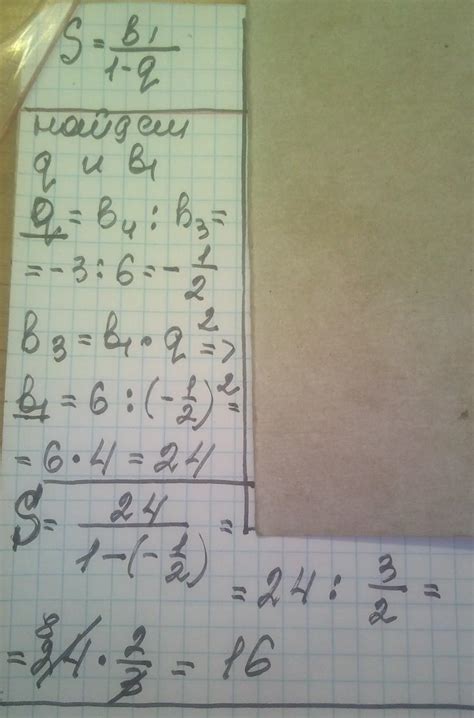 S = в₁/(1-q)
найдем
q и в₁
q = в₄ : в₃ =
= -3 : 6 = -1/2
в₃ = в₁ · q² =>
в₁ = 6 : (-1/2)² =
= 6 · 4 = 24
S = 24/(1-(-1/2)) =
= 24 : 3/2 =
= 24 · 2/3 = 16
8